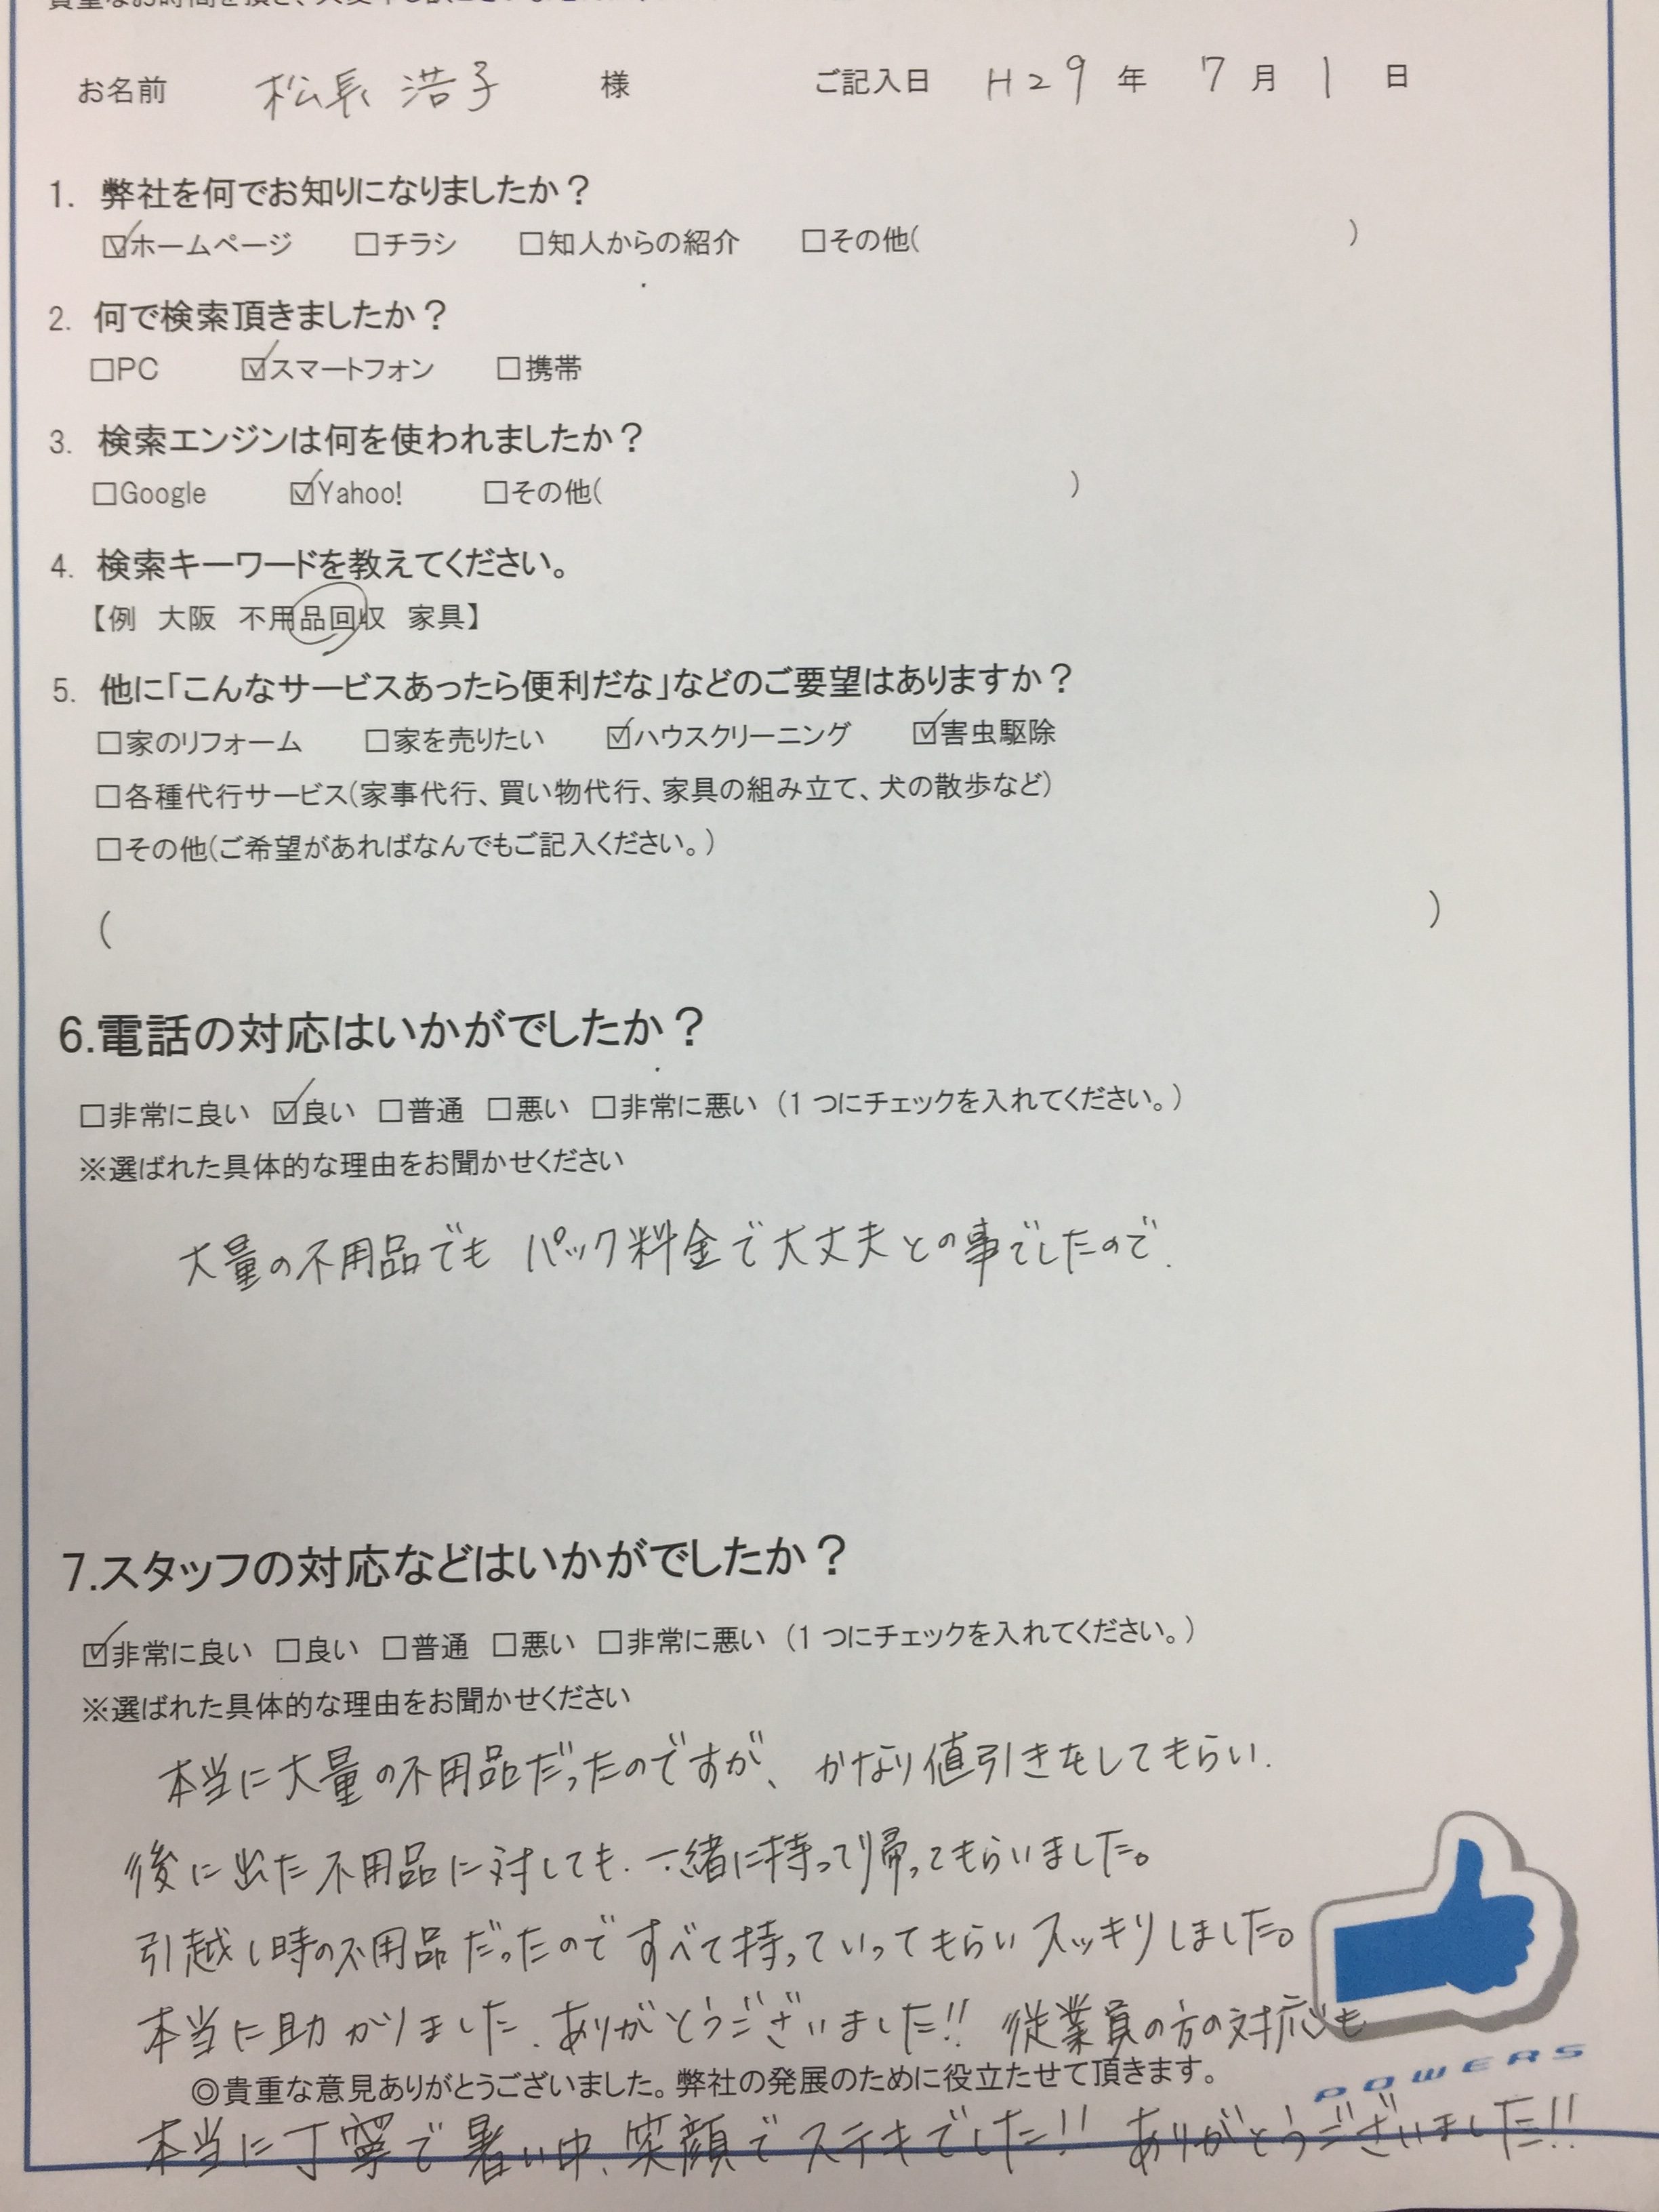 お名前 松長 浩子 様 ご記入日 H29年 7月 1日
1. 弊社を何でお知りになりましたか？
☑ホームページ □チラシ □知人からの紹介 □その他( )
2. 何で検索頂きましたか？
□PC ☑スマートフォン □携帯
3. 検索エンジンは何を使われましたか？
□Google ☑Yahoo! □その他( )
4. 検索キーワードを教えてください。
【例 大阪 不用品回収 家具】
5. 他に「こんなサービスあったら便利だな」などのご要望はありますか？
□家のリフォーム □家を売りたい ☑ハウスクリーニング ☑害虫駆除
□各種代行サービス(家事代行、買い物代行、家具の組み立て、犬の散歩など)
□その他(ご希望があればなんでもご記入ください。)
( )
6.電話の対応はいかがでしたか？
□非常に良い ☑良い □普通 □悪い □非常に悪い (1つにチェックを入れてください。)
※選ばれた具体的な理由をお聞かせください
大量の不用品でも パック料金で大丈夫との事でしたので.
7.スタッフの対応などはいかがでしたか？
☑非常に良い □良い □普通 □悪い □非常に悪い (1つにチェックを入れてください。)
※選ばれた具体的な理由をお聞かせください
本当に大量の不用品だったのですが、かなり値引きをしてもらい.
後に出た不用品に対しても.一緒に持って帰ってもらいました。
引越し時の不用品だったので すべて持っていってもらいスッキリしました。
本当に助かりました.ありがとうございました!! 従業員の方の対応も
◎貴重な意見ありがとうございました。弊社の発展のために役立たせて頂きます。
POWERS
本当に丁寧で暑い中、笑顔でステキでした!! ありがとうございました!!